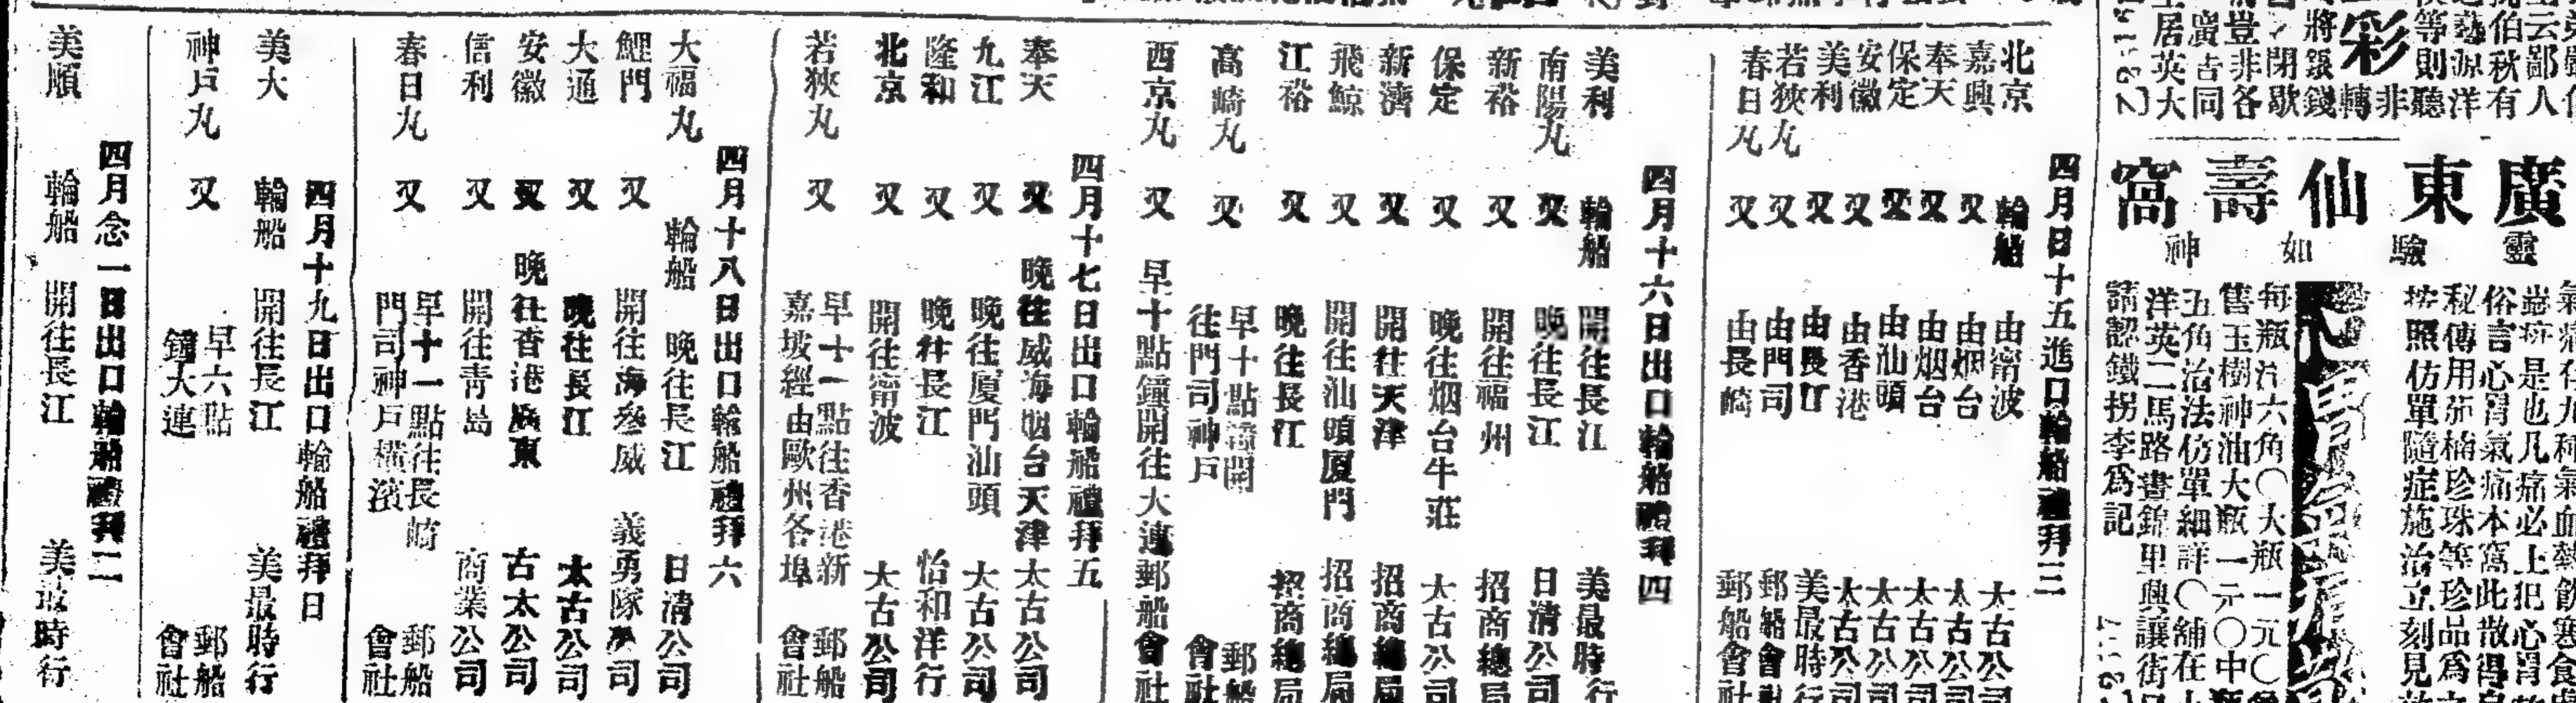 廣東仙壽窩
靈驗如神
按照仿單隨症施治立刻見
每瓶洋六角〇大瓶一元〇
售玉樹神油大瓶一元〇中
五角治法仿單細詳〇舖在
洋英二馬路晝錦里興讓街
請認鐵拐李為記
四月日十五進口輪船禮拜三
北京 輪船 由甯波 太古公司
嘉興 又 由烟台 太古公司
奉天 又 由烟台 太古公司
保定 又 由汕頭 太古公司
安徽 又 由香港 太古公司
美利 又 由長江 美最時行
若狹丸 又 由門司 郵船會社
春日丸 又 由長崎 郵船會社
四月十六日出口輪船禮拜四
美利 輪船 開往長江 美最時行
南陽丸 又 晚往長江 日清公司
新裕 又 開往福州 招商總局
保定 又 晚往烟台牛莊 太古公司
新濟 又 開往天津 招商總局
飛鯨 又 開往汕頭厦門 招商總局
江裕 又 晚往長江 招商總局
高崎丸 又 早十點鐘開往門司神戶 郵船會社
西京丸 又 早十點鐘開往大連 郵船會社
四月十七日出口輪船禮拜五
奉天 又 晚往威海烟台天津 太古公司
九江 又 晚往厦門汕頭 太古公司
隆和 又 晚往長江 怡和洋行
北京 又 開往甯波 太古公司
若狹丸 又 早十一點往香港新嘉坡經由歐州各埠 郵船會社
四月十八日出口輪船禮拜六
大福丸 輪船 晚往長江 日清公司
鯉門 又 開往海參威 義勇隊公司
大通 又 晚往長江 太古公司
安徽 又 晚往香港廣東 古太公司
信利 又 開往青島 商業公司
春日丸 又 早十一點往長崎門司神戶橫濱 郵船會社
四月十九日出口輪船禮拜日
美大 輪船 開往長江 美最時行
神戶丸 又 早六點鐘大連 郵船會社
四月念一日出口輪船禮拜二
美順 輪船 開往長江 美最時行